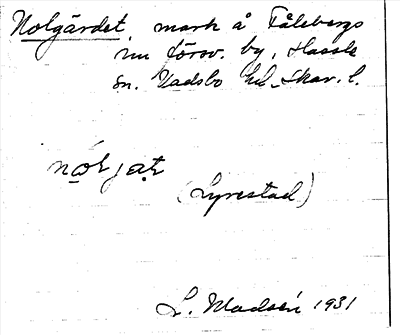 Nolgärdet, mark å Fåleberg
nu försv. by, Hassle
sn. Vadsbo hd. Skar. l.
(Lyrestad)
L. Madsén 1931